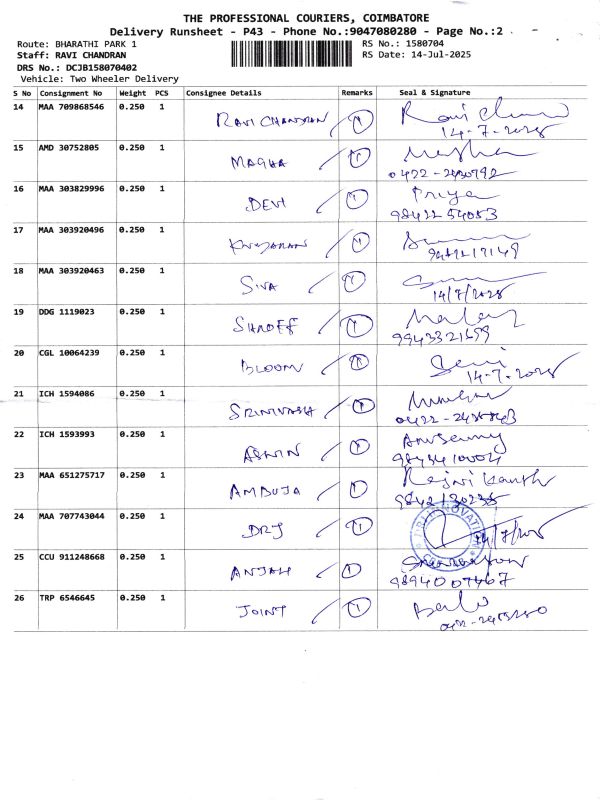 THE PROFESSIONAL COURIERS, COIMBATORE
Delivery Runsheet - P43 - Phone No.:9047080280 - Page No.:2
Route: BHARATHI PARK 1 RS No.: 1580704
Staff: RAVI CHANDRAN RS Date: 14-Jul-2025
DRS No.: DCJB158070402
Vehicle: Two Wheeler Delivery
S No Consignment No Weight PCS Consignee Details Remarks Seal & Signature
14 MAA 709868546 0.250 1 RAVI CHANDRAN 1 Ravi
14-7-2025
15 AMD 30752805 0.250 1 MAGHA 1
0422-2430792
16 MAA 303829996 0.250 1 DEVI 1 Priya
98422 54053
17 MAA 303920496 0.250 1 1
18 MAA 303920463 0.250 1 SIVA 1
14/7/2025
19 DDG 1119023 0.250 1 SHROFF 1
9943321699
20 CGL 10064239 0.250 1 BLOOM 1
14-7-2025
21 ICH 1594086 0.250 1 SRINIVASA 1
22 ICH 1593993 0.250 1 ASWIN 1
23 MAA 651275717 0.250 1 AMBUJA 1 Rajni Kanth
9842130235
24 MAA 707743044 0.250 1 1
25 CCU 911248668 0.250 1 ANJALI 1
9894007467
26 TRP 6546645 0.250 1 JOINT 1